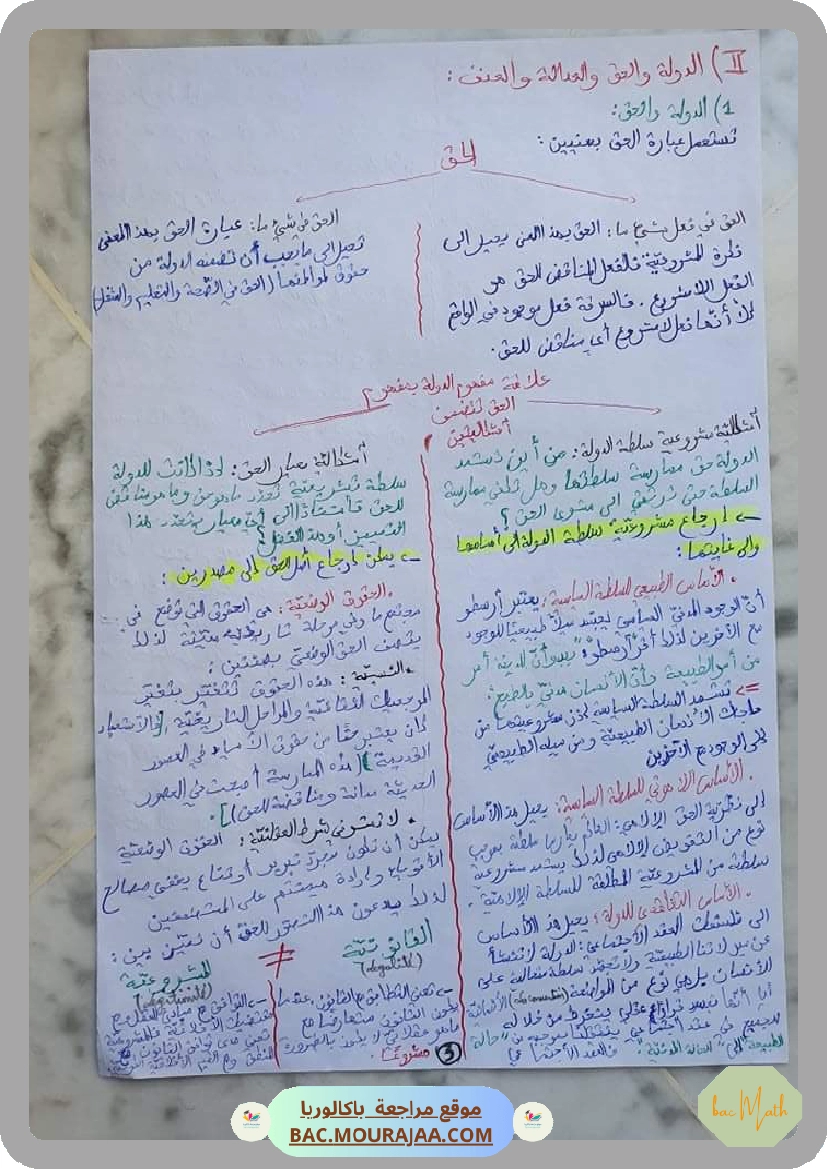 II) الدولة والحق والعدالة والعنف:
1) الدولة والحق:
تستعمل عبارة الحق بمعنيين:
الحق
الحق في فعل شيء ما: الحق بهذا المعنى يحيل الى
فكرة المشروعية فالفعل المناقض للحق هو
الفعل اللامشروع. فالسرقة فعل موجود في الواقع
إلا أنها فعل لا مشروع أي مناقض للحق.
الحق في شيء ما: عبارة الحق بهذا المعنى
تحيل الى ما يجب أن تضمنه الدولة من
حقوق لمواطنيها (الحق في الصحة والتعليم والتنقل)
علاقة مفهوم الدولة بمفهوم
الحق تتضمن
إشكاليتين
إشكالية مشروعية سلطة الدولة: من أين تستمد
الدولة حق ممارسة سلطتها وهل تكفي ممارسة
السلطة حتى ترتقي الى مستوى الحق؟
← إرجاع مشروعية سلطة الدولة الى أساسها
والى غايتها:
• الأساس الطبيعي للسلطة السياسية: يعتبر أرسطو
أن الوجود المدني السياسي يجسد ميلا طبيعيا للوجود
مع الآخرين لذلك أقر أرسطو: "يبدو أن المدينة أمر
من أمور الطبيعة وأن الإنسان مدني بالطبع".
<= تستمد السلطة السياسية إذن مشروعيتها من
حاجات الإنسان الطبيعية و من ميله الطبيعي
الى الوجود مع الآخرين
• الأساس اللاهوتي للسلطة السياسية: يحيل هذا الأساس
إلى نظرية الحق الإلهي: الحاكم يمارس سلطة بموجب
نوع من التفويض الإلهي لذلك يستمد مشروعية
سلطته من المشروعية المطلقة للسلطة الإلاهية.
• الأساس التعاقدي للدولة: يحيل هذا الأساس
الى فلسفات العقد الاجتماعي: الدولة لا تنشأ
عن ميولاتنا الطبيعية ولا تجسد سلطة متعالية على
الإنسان بل هي نوع من المواضعة (la convention) الإنسانية
أي أنها تجسد قرار عقلي ينخرط من خلاله
الجميع في عقد اجتماعي ينتقلنا بموجبه من "حالة
الطبيعة" إلى "الحالة المدنية". فالعقد الاجتماعي
إشكالية معيار الحق: إذا كانت للدولة
سلطة تشريعية تحدد ما هو حق وما هو مناقض
للحق فاستنادا إلى أي معيار يتحدد هذا
← يمكن إرجاع أصل الحق إلى مصدرين:
• الحقوق الوضعية: هي الحقوق التي توضع في
مجتمع ما وفي مرحلة تاريخية معينة لذلك
يتصف الحق الوضعي بصفتين:
• النسبية: هذه الحقوق تتغير بتغير
المرجعيات الثقافية والمراحل التاريخية [فالاستعباد
كان يعتبر حقا من حقوق الأسياد في العصور
القديمة (هذه الممارسة أصبحت في العصور
الحديثة مدانة ومناقضة للحق)].
• لا تستوفي شرط العقلانية: الحقوق الوضعية
يمكن أن تكون مجرد تبرير أو قناع يخفي مصالح
الأقوياء وإرادة هيمنتهم على المستضعفين
لذلك يدعونا هذا التصور للحق أن نميز بين:
القانونية ≠ المشروعية
(légalité) (légitimité)
← تعني التطابق مع القانون، عندما
يكون القانون متعارضا مع
ما هو عقلاني لا يكون بالضرورة
مشروعا.
← التوافق مع مبادئ العقل ومع
مقتضيات الأخلاقية، فالمشروعية
تعني مدى توافق القانون مع
المنطق ومع القيم الأخلاقية
3
موقع مراجعة باكالوريا
BAC.MOURAJAA.COM
bac Math